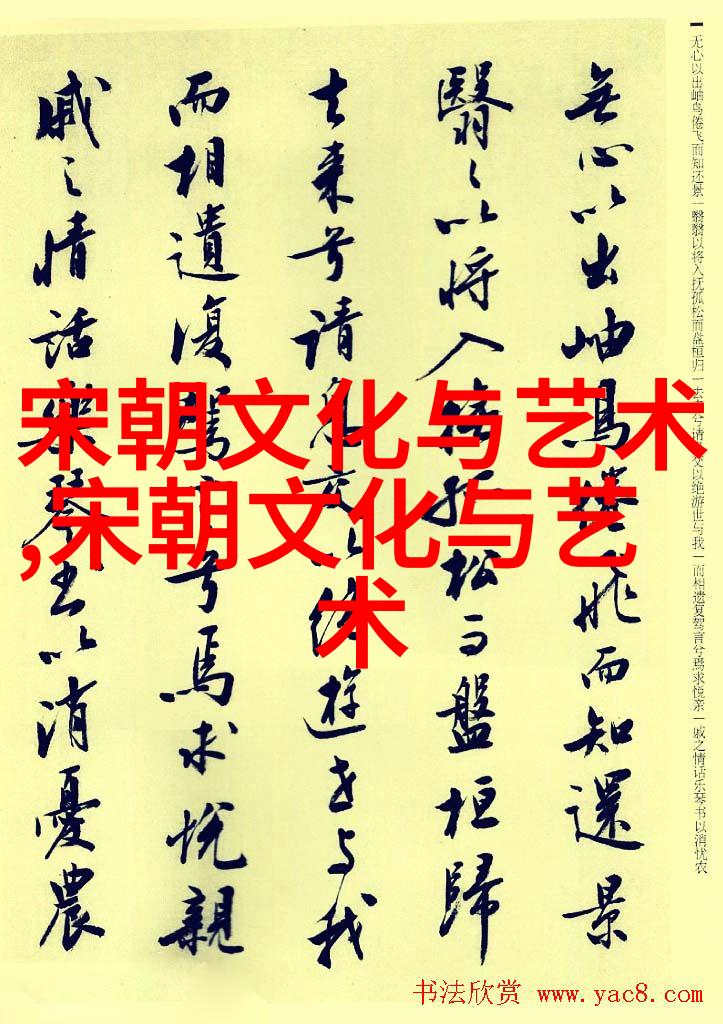 无心以出岫鸟倦飞而知还景一翳翳以将入抚孤松而盘桓归一去兮请交以绝游世与我一而相遗复驾言兮焉求悦亲一戚之情话乐琴书以消忧农
無心以出岫鳥倦飛而知還景
翳〻以将入撫孤松而盤桓歸
去来兮請息交以絶遊世与我
而相遺復駕言兮焉求悅親
戚之情話樂琴書以消憂農
宋朝文化与艺术
,宋朝文化与艺
术
书法欣赏 www.yac8.com